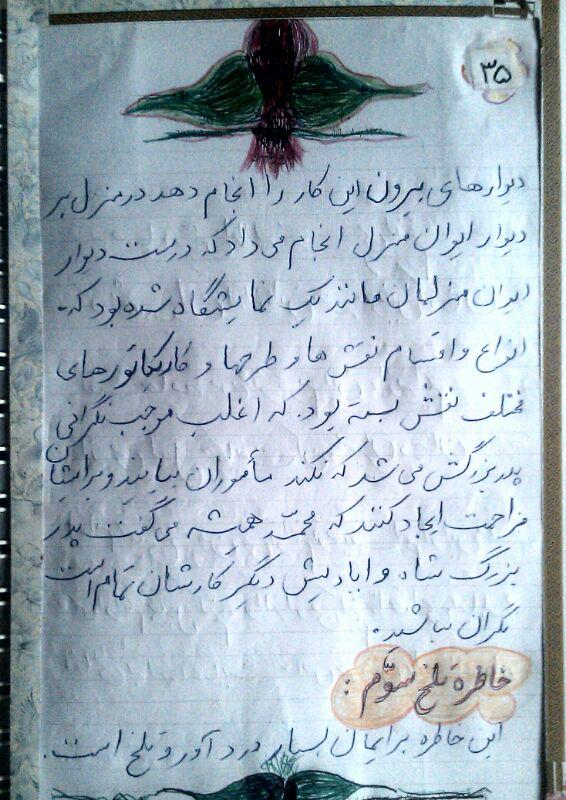 ۳۵
دیوارهای بیرون این کار را انجام دهد در منزل بر
دیوار ایوان منزل انجام می داد که درست دیوار
ایوان منزلمان مانند یک نمایشگاه شده بود که
انواع و اقسام نقش ها و طرحها و کاریکاتورهای
مختلف نقش بسته بود. که اغلب موجب نگرانی
پدربزرگش می شد که نکند مأموران بیایند و برایشان
مزاحمت ایجاد کنند که محمّد همیشه می گفت پدر
بزرگ شاه و ایادیش دیگر کارشان تمام است
نگران نباشید.
خاطره تلخ سوّم :
این خاطره برایمان بسیار درد آور و تلخ است.